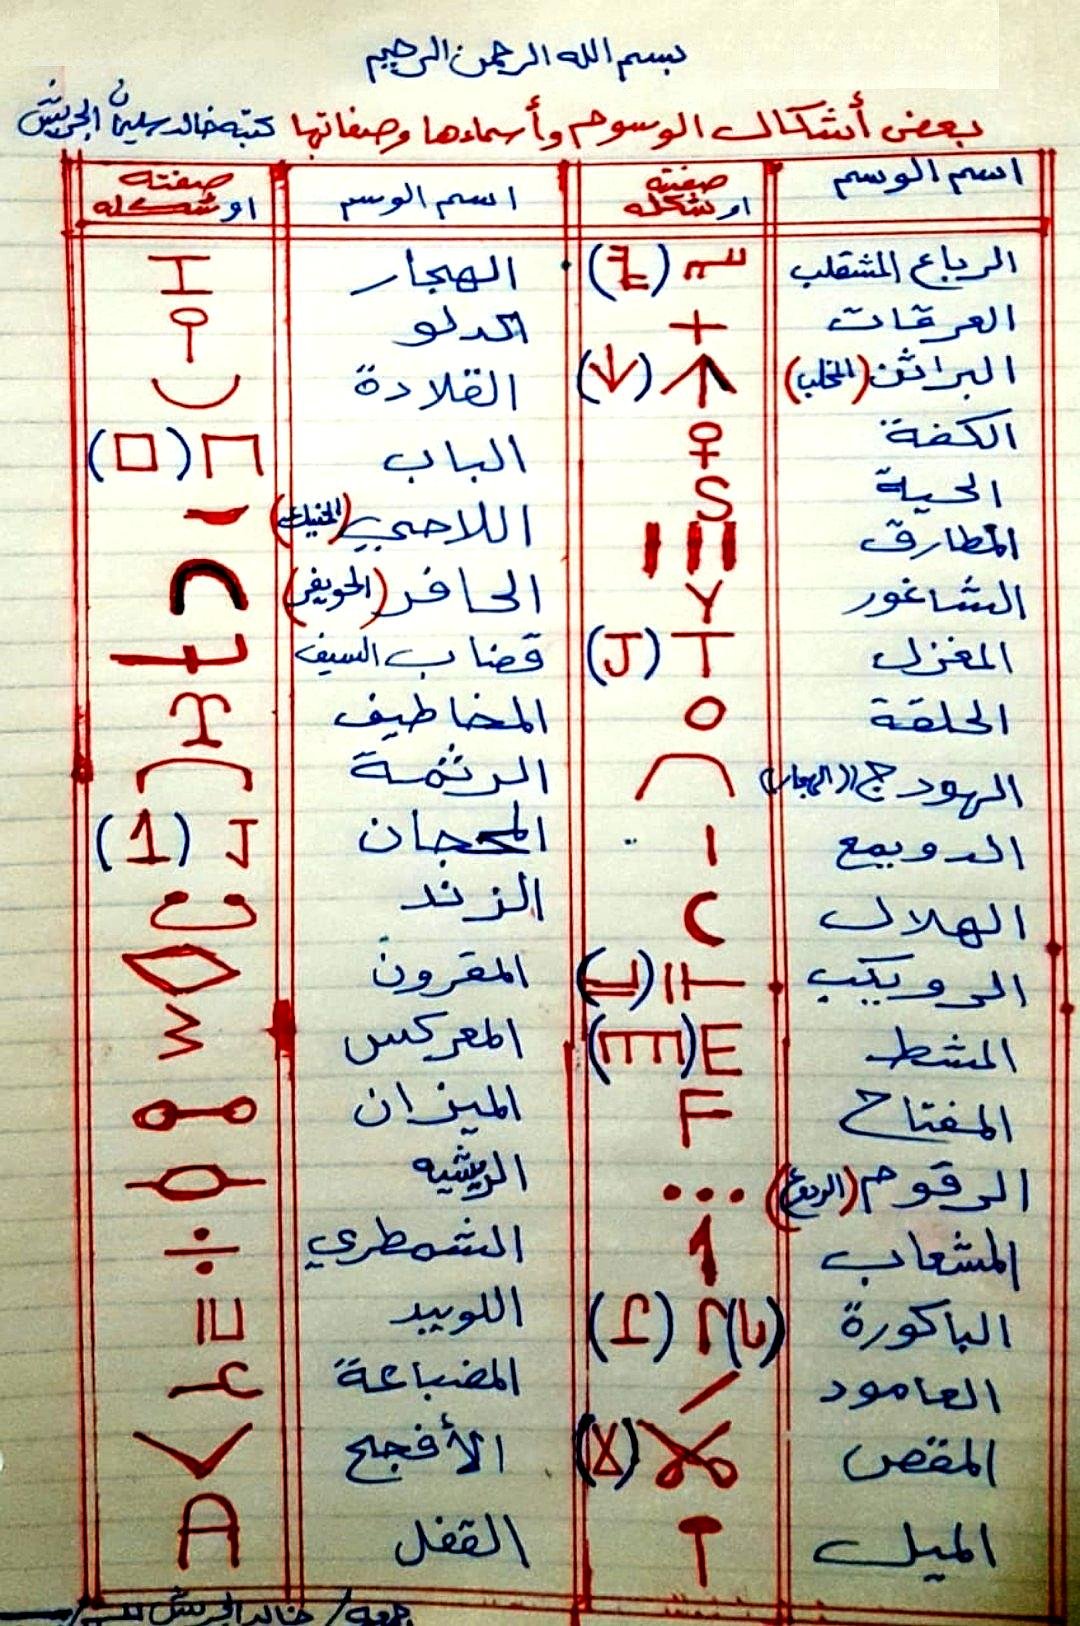 بسم الله الرحمن الرحيم
بعض أشكال الوسوم وأسماءها وصفاتها كتبه خالد سليمان الحريش
اسم الوسم صفته او شكله اسم الوسم صفته او شكله
الرباع المشقلب الهجار
العرقات الدلو
البراثن (المخلب) القلادة
الكفة الباب
الحية اللاحي
المطارق الحافر (الحويفر)
الشاغور قضاب السيف
المغزل المخاطيف
الحلقة الرثمة
الهودج المحجان
الدويمع الزند
الهلال المقرون
الرويكب المعركس
المشط الميزان
المفتاح الريشيه
الرقوم الشمطري
المشعاب اللوبيد
الباكورة المضباعة
العامود الأفجح
المقص القفل
الميل
جمعه / خالد الحريش